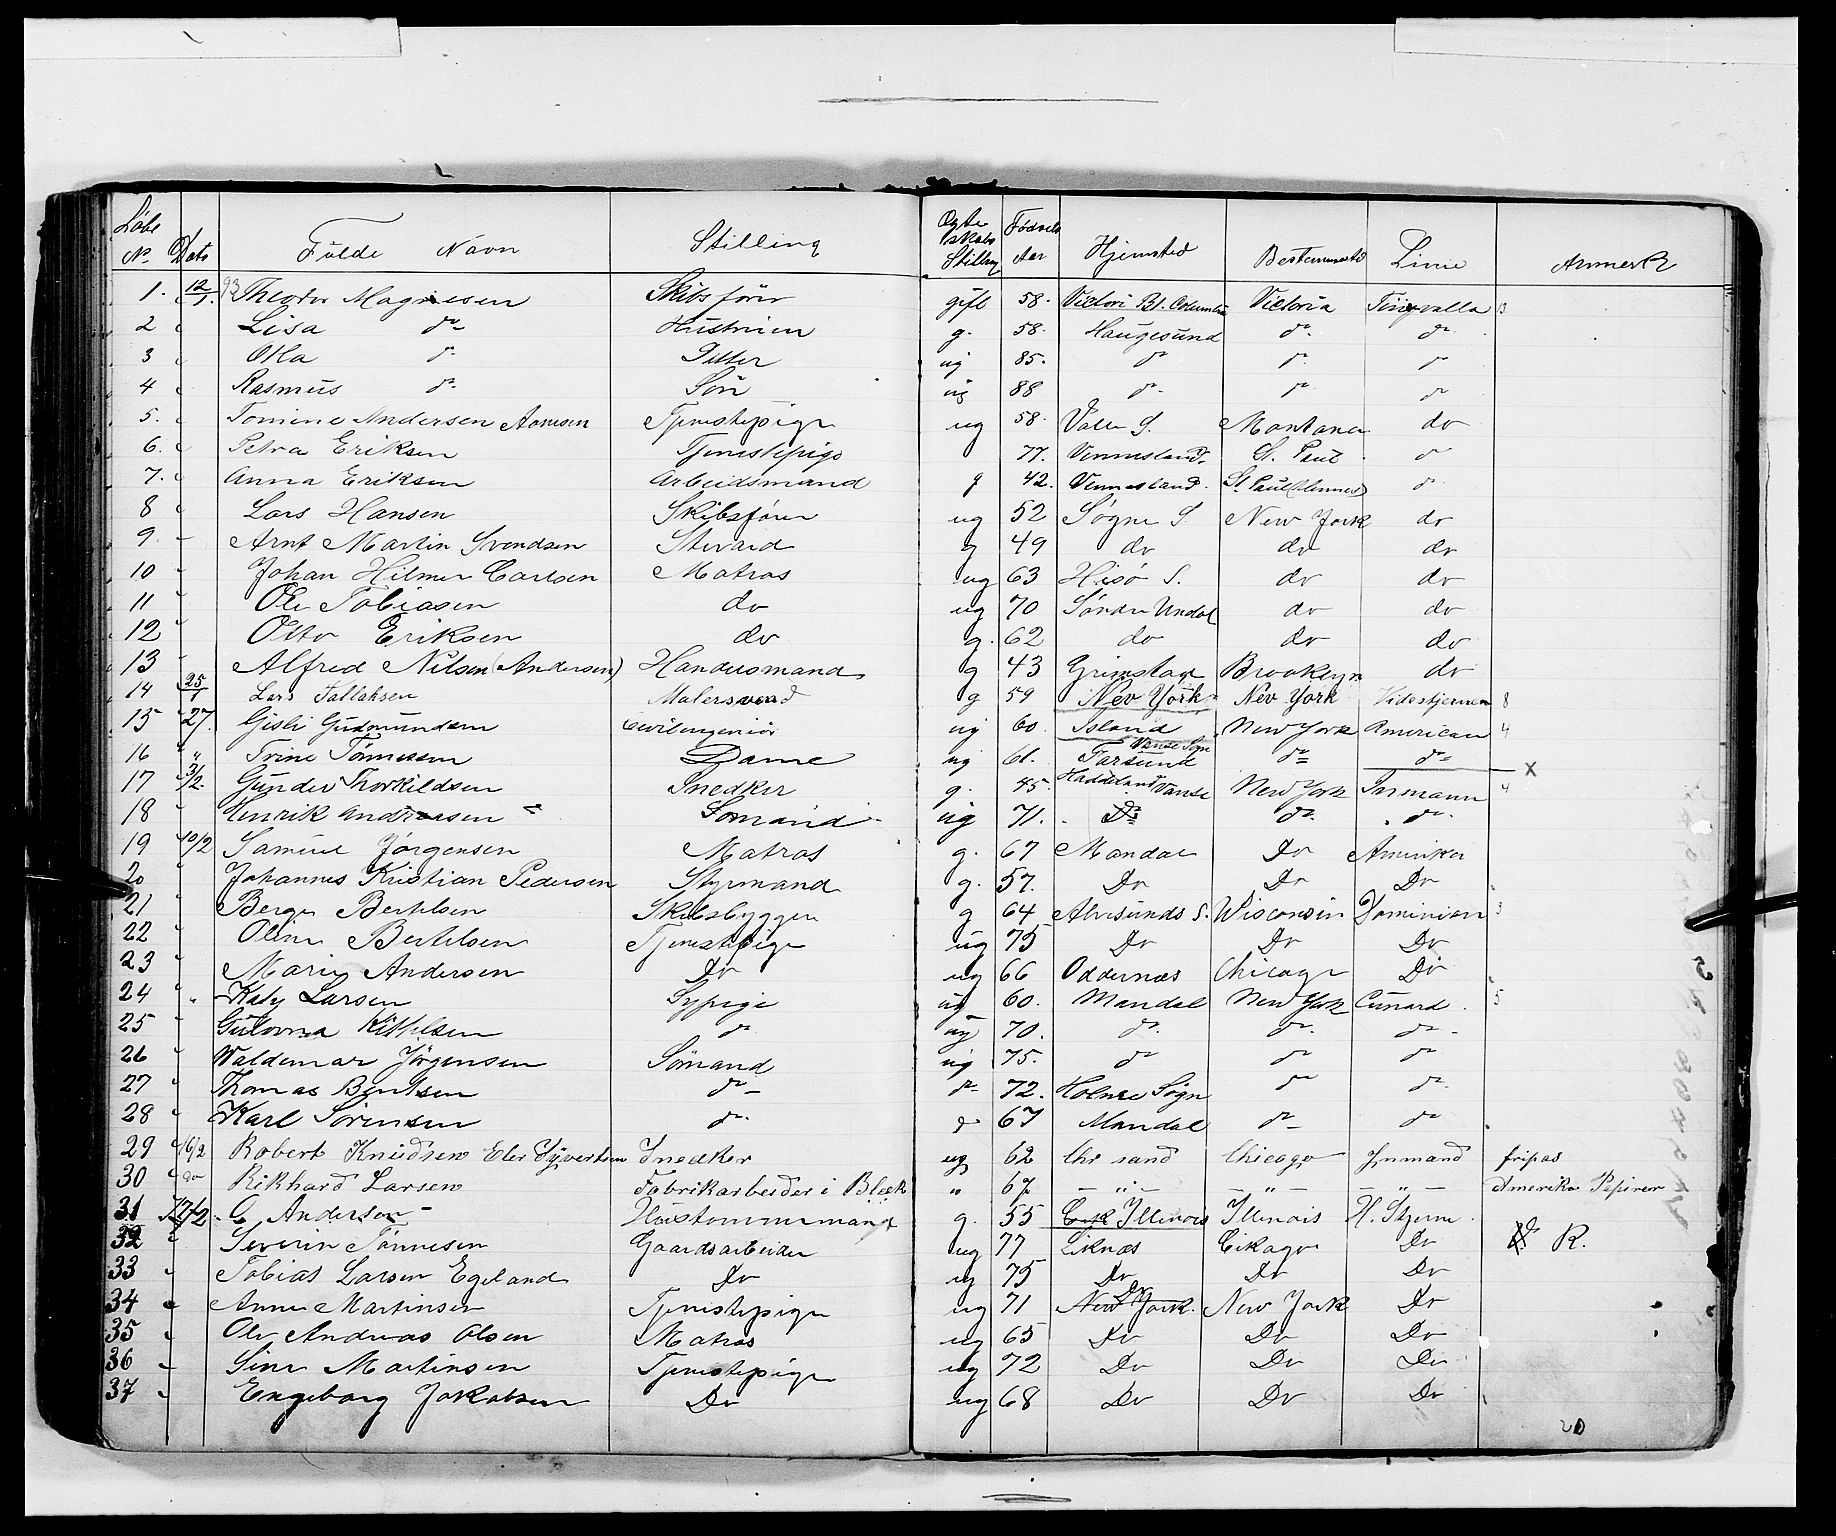 Løbe N. Dato Fulde Navn Stilling Egteskabs Stilling Fødsels Aar Hjemsted Bestemmelsted Linie Anmerk
1. 12/1 93 Theodor Magnesen Skibsfører gift 58. Victori Bt. Columbia Victoria Tingvalla 13
2 Lisa do Hustruen g. 58. Haugesund do do
3 Olla do Datter ug 85. do do do
4 Rasmus do Søn ug 88 do do do
5. Tomine Andersen Aanesen Tjenestepige ug 58. Valle S. Montana do
6. Petra Eriksen Tjenestepige 77. Vennesland. St. Paul do
7. Anna Eriksen Arbeidsmand g 42. Vennesland. St. Paul (Mennes) do
8 Lars Hansen Skibsfører ug 52 Søgne S. New York do
9. Arnt Martin Svendsen Stevard g 49 do do do
10 Johan Hilmer Carlsen Matros ug 63 Hisø S. do do
11 Ole Tobiasen do ug 70 Søndre Undal do do
12 Otto Eriksen do g. 62 do do do
13 Alfred Nilsen (Andersen) Handelsmand g 43 Grimstad Brooklyn do
14 25/1 Lars Tallaksen Malersvend g 59 Nev York Nev York Hvidestjernen 8
15 27. Gisli Gudmundsen Civilingeniør ug 60. Island New York American 4
16 " Trine Tønnesen Dame ug 61. Farsund Vanse Sogn do do x
17 3/2. Gunder Thorkildsen Snedker g. 45. Haddeland Vanse New York Tormann 4
18 Henrik Andreasen Sømand ug 71. do do do
19 10/2 Samuel Jørgensen Matros g. 67 Mandal Do Amerika
20 Johannes Kristian Pedersen Styrmand g. 57. Do Do Do
21 Berge Bertelsen Skibsbygger g 64 Alvesunds S. Wisconsin Dominion 3
22 Oline Bertelsen Tjenestepige ug 75 Do Do Do
23 Marie Andersen Do ug 66 Oddernæs Chicago Do
24 Katy Larsen Sypige ug 60. Mandal New York Cunard 5
25 Gulovna Kittelsen do ug 70. do do do
26 Waldemar Jørgensen Sømand ug 75. do do do
27 Thomas Bentsen do do 72. Holme Sogn do do
28 Karl Sørensen do do 67 Mandal do do
29 16/2 Robert Knudsen Eler Syvertsen Snedker ug 62 Chr sand Chicago Innmand fripas
30 do Rikhard Larsen Fabrikarbeider i Blæk " 67 " " " Amerika Papirer
31 17/2 C. Andersen Hustømmermand g. 55 Illinois Illinois H. Stjerne
32 Severin Tønnesen Gaardsarbeider ug 77 Liknæs Cikago Do R.
33 Tobias Larsen Egeland Do ug 75 Do Do Do
34 Anne Martinsen Tjenestepige ug 71 New York. Do New York Do
35 Ole Andreas Olsen Matros ug 65 Do Do Do
36 Sine Martinsen Tjenestepige ug 72 Do Do Do
37 Engeborg Jakobsen Do ug 68 Do Do Do
20